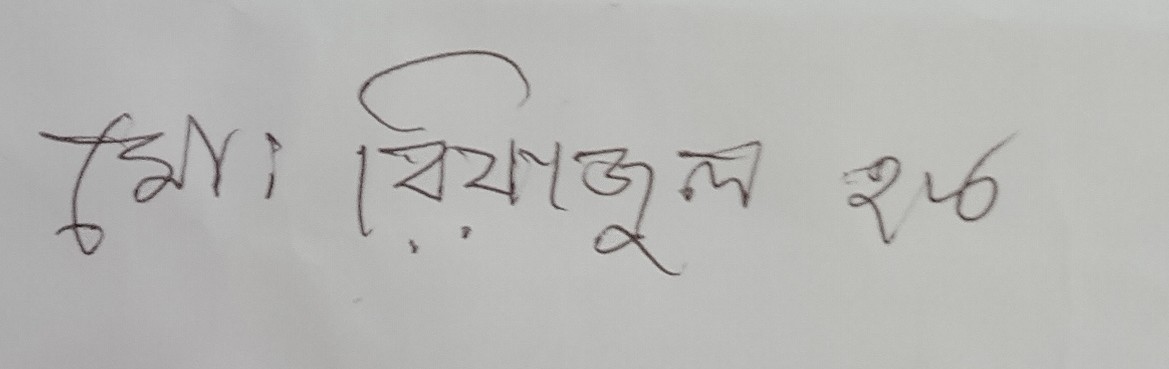 মোঃ রিয়াজুল হক